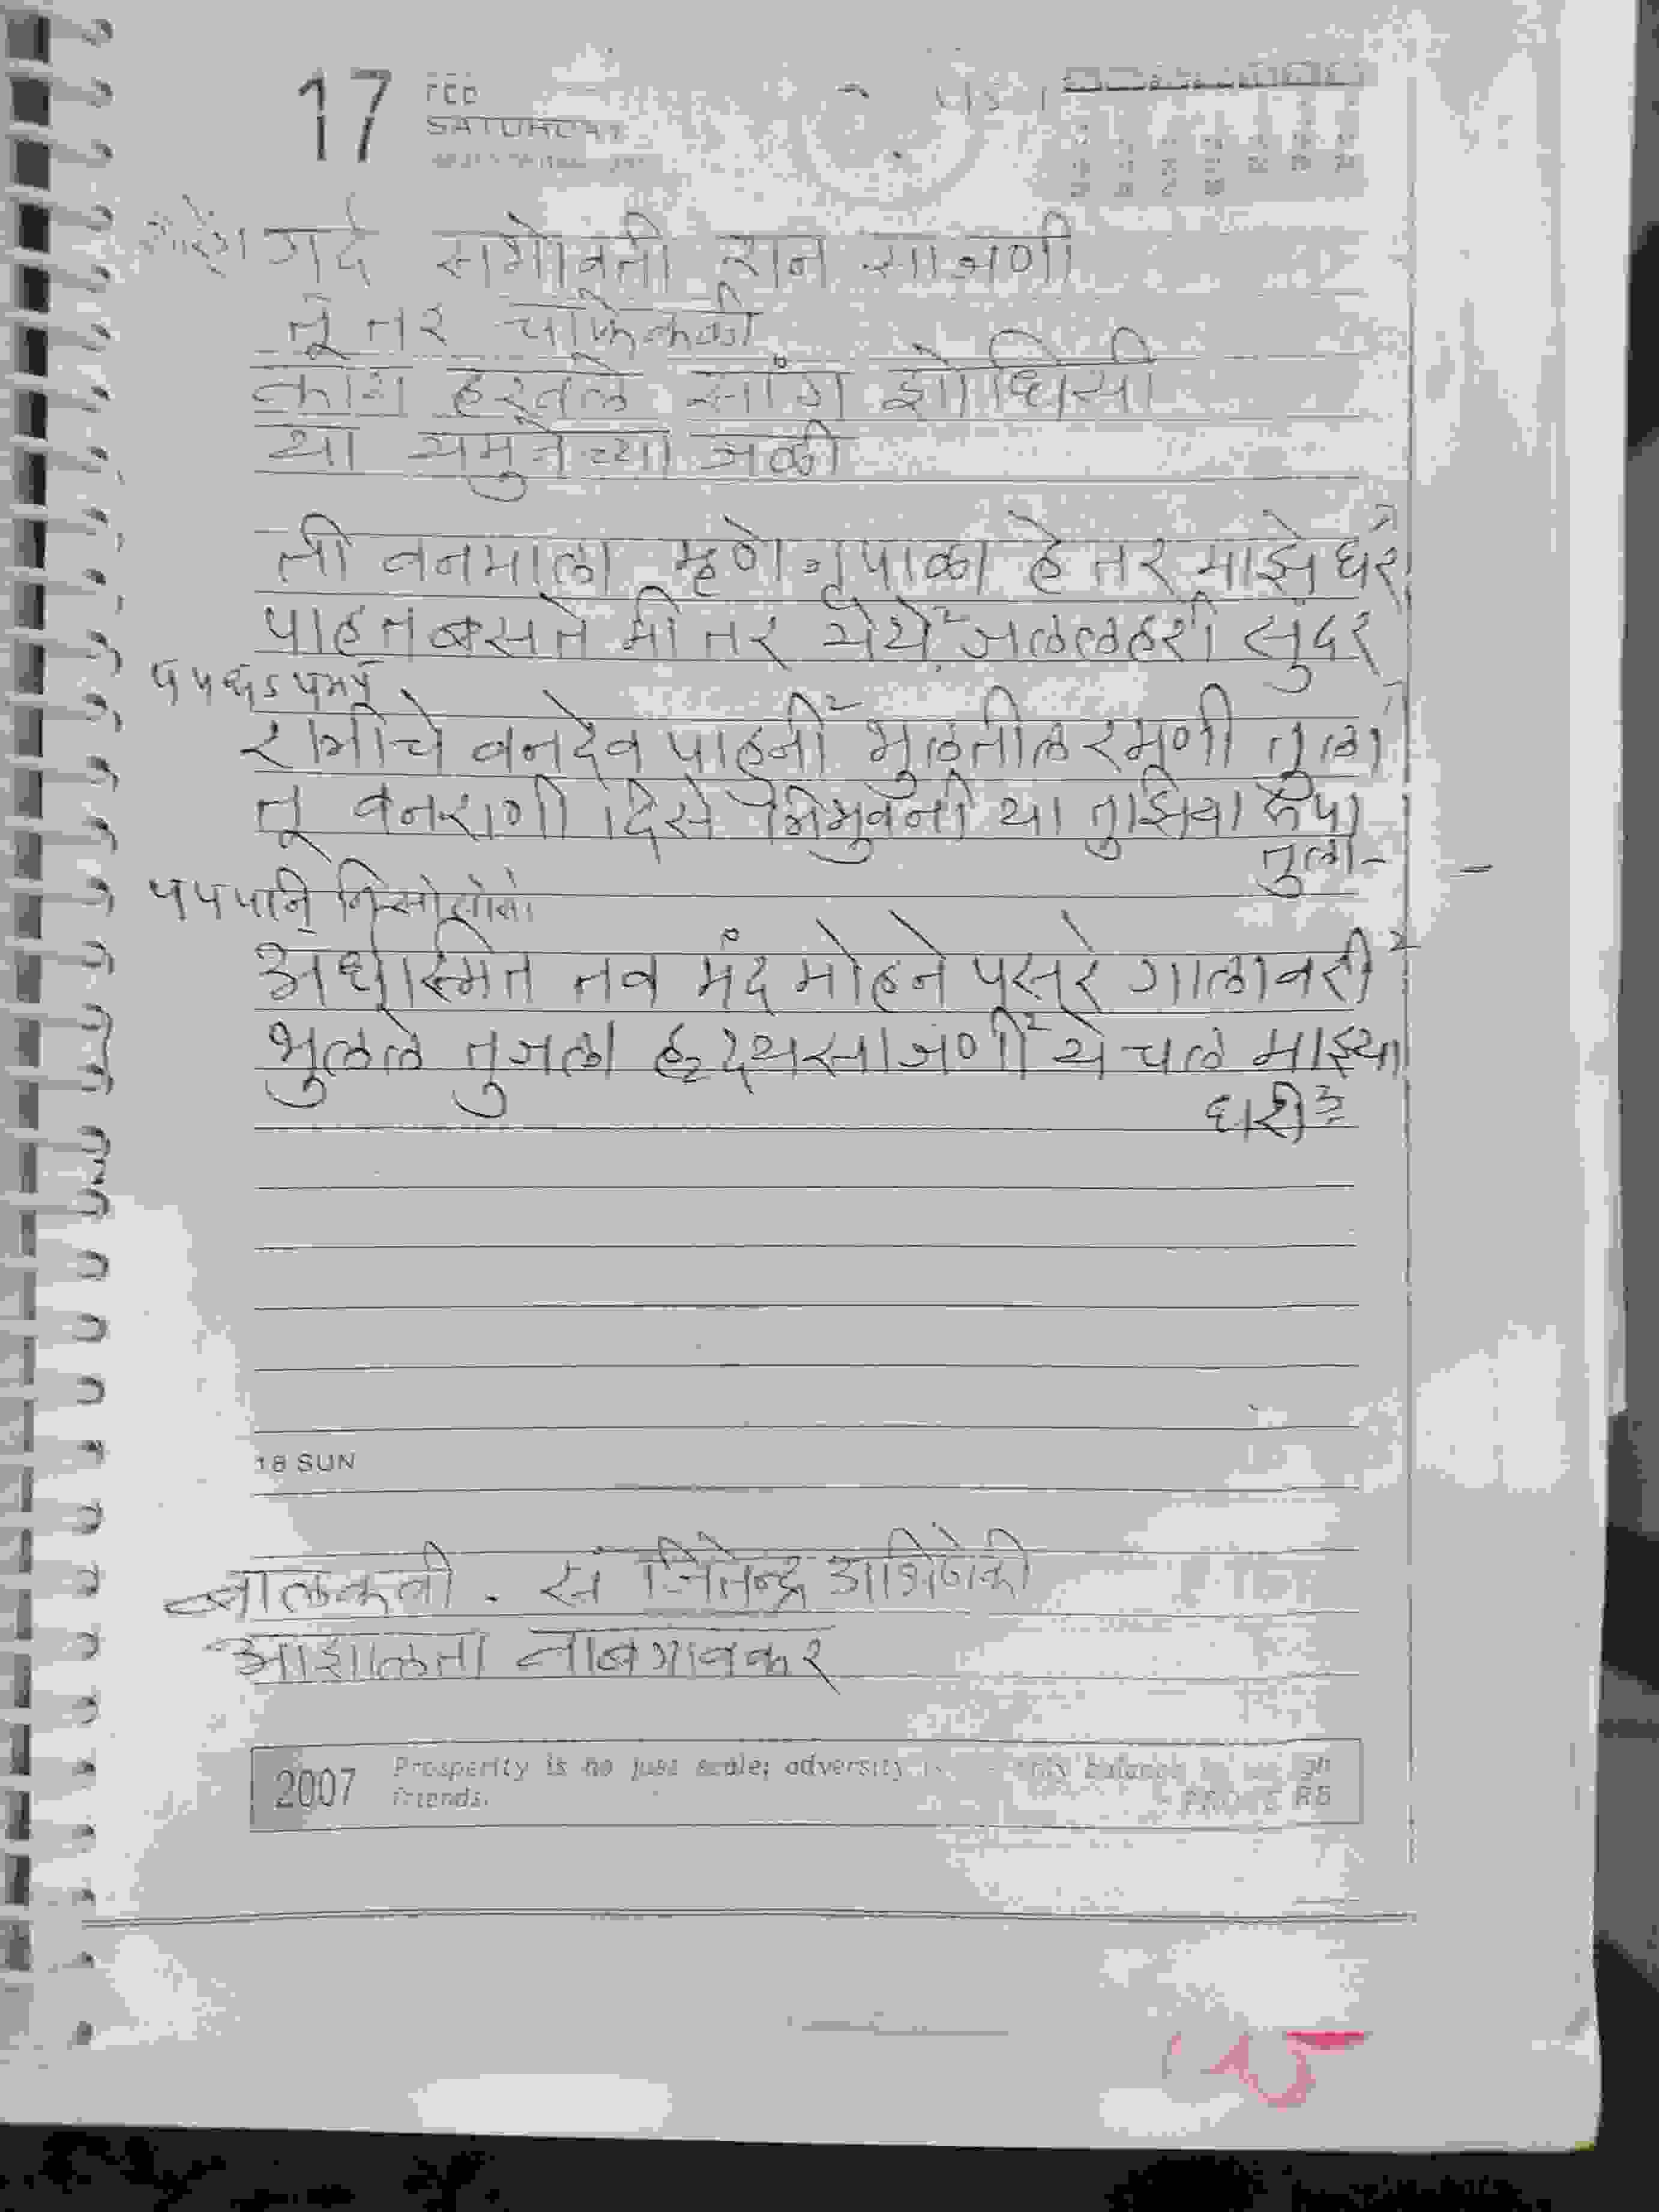 17 FEB
SATURDAY
गर्द सभोवती रान साजणी
तू तर चाफेकळी
काय हरवले सांग शोधिसी
या यमुनेच्या जळी
ती वनमाला म्हणे नृपाळा हे तर माझे घर
पाहत बसते मी तर येथे २ जललहरी सुंदर
प प ध s प म प
रात्रीचे वनदेव पाहुनी २ भुलतील रमणी तुला
तू वनराणी दिसे त्रिभुवनी या तुझिया रूपा
तुला -
प प प
अर्धस्मित तव मंद मोहने पसरे गालावरी २
भुलले तुजला हृदय साजणी २ ये चल माझ्या
घरी ३
18 SUN
बालकवी . सं जितेन्द्र अभिषेकी
आशालता वाबगावकर
2007 Prosperity is no just scale; adversity is only balance to
friends.